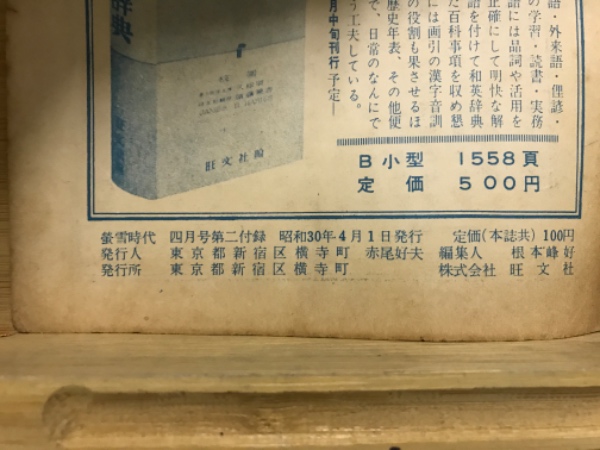 語・外来語・俚諺・
の学習・読書・実務
語には品詞や活用を
正確にして明快な解
語を付けて和英辞典
た百科事項を収め懇
には画引の漢字音訓
の役割も果させるほ
歴史年表、その他便
で、日常のなんにで
う工夫している。
月中旬刊行予定―
辞典
旺文社編
B小型 1558頁
定価 500円
螢雪時代 四月号第二付録 昭和30年4月1日発行 定価(本誌共)100円
発行人 東京都新宿区横寺町 赤尾好夫 編集人 根本峰好
発行所 東京都新宿区横寺町 株式会社 旺文社